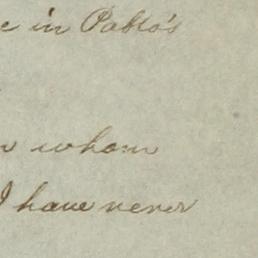 e in Pablo's
whom
I have never